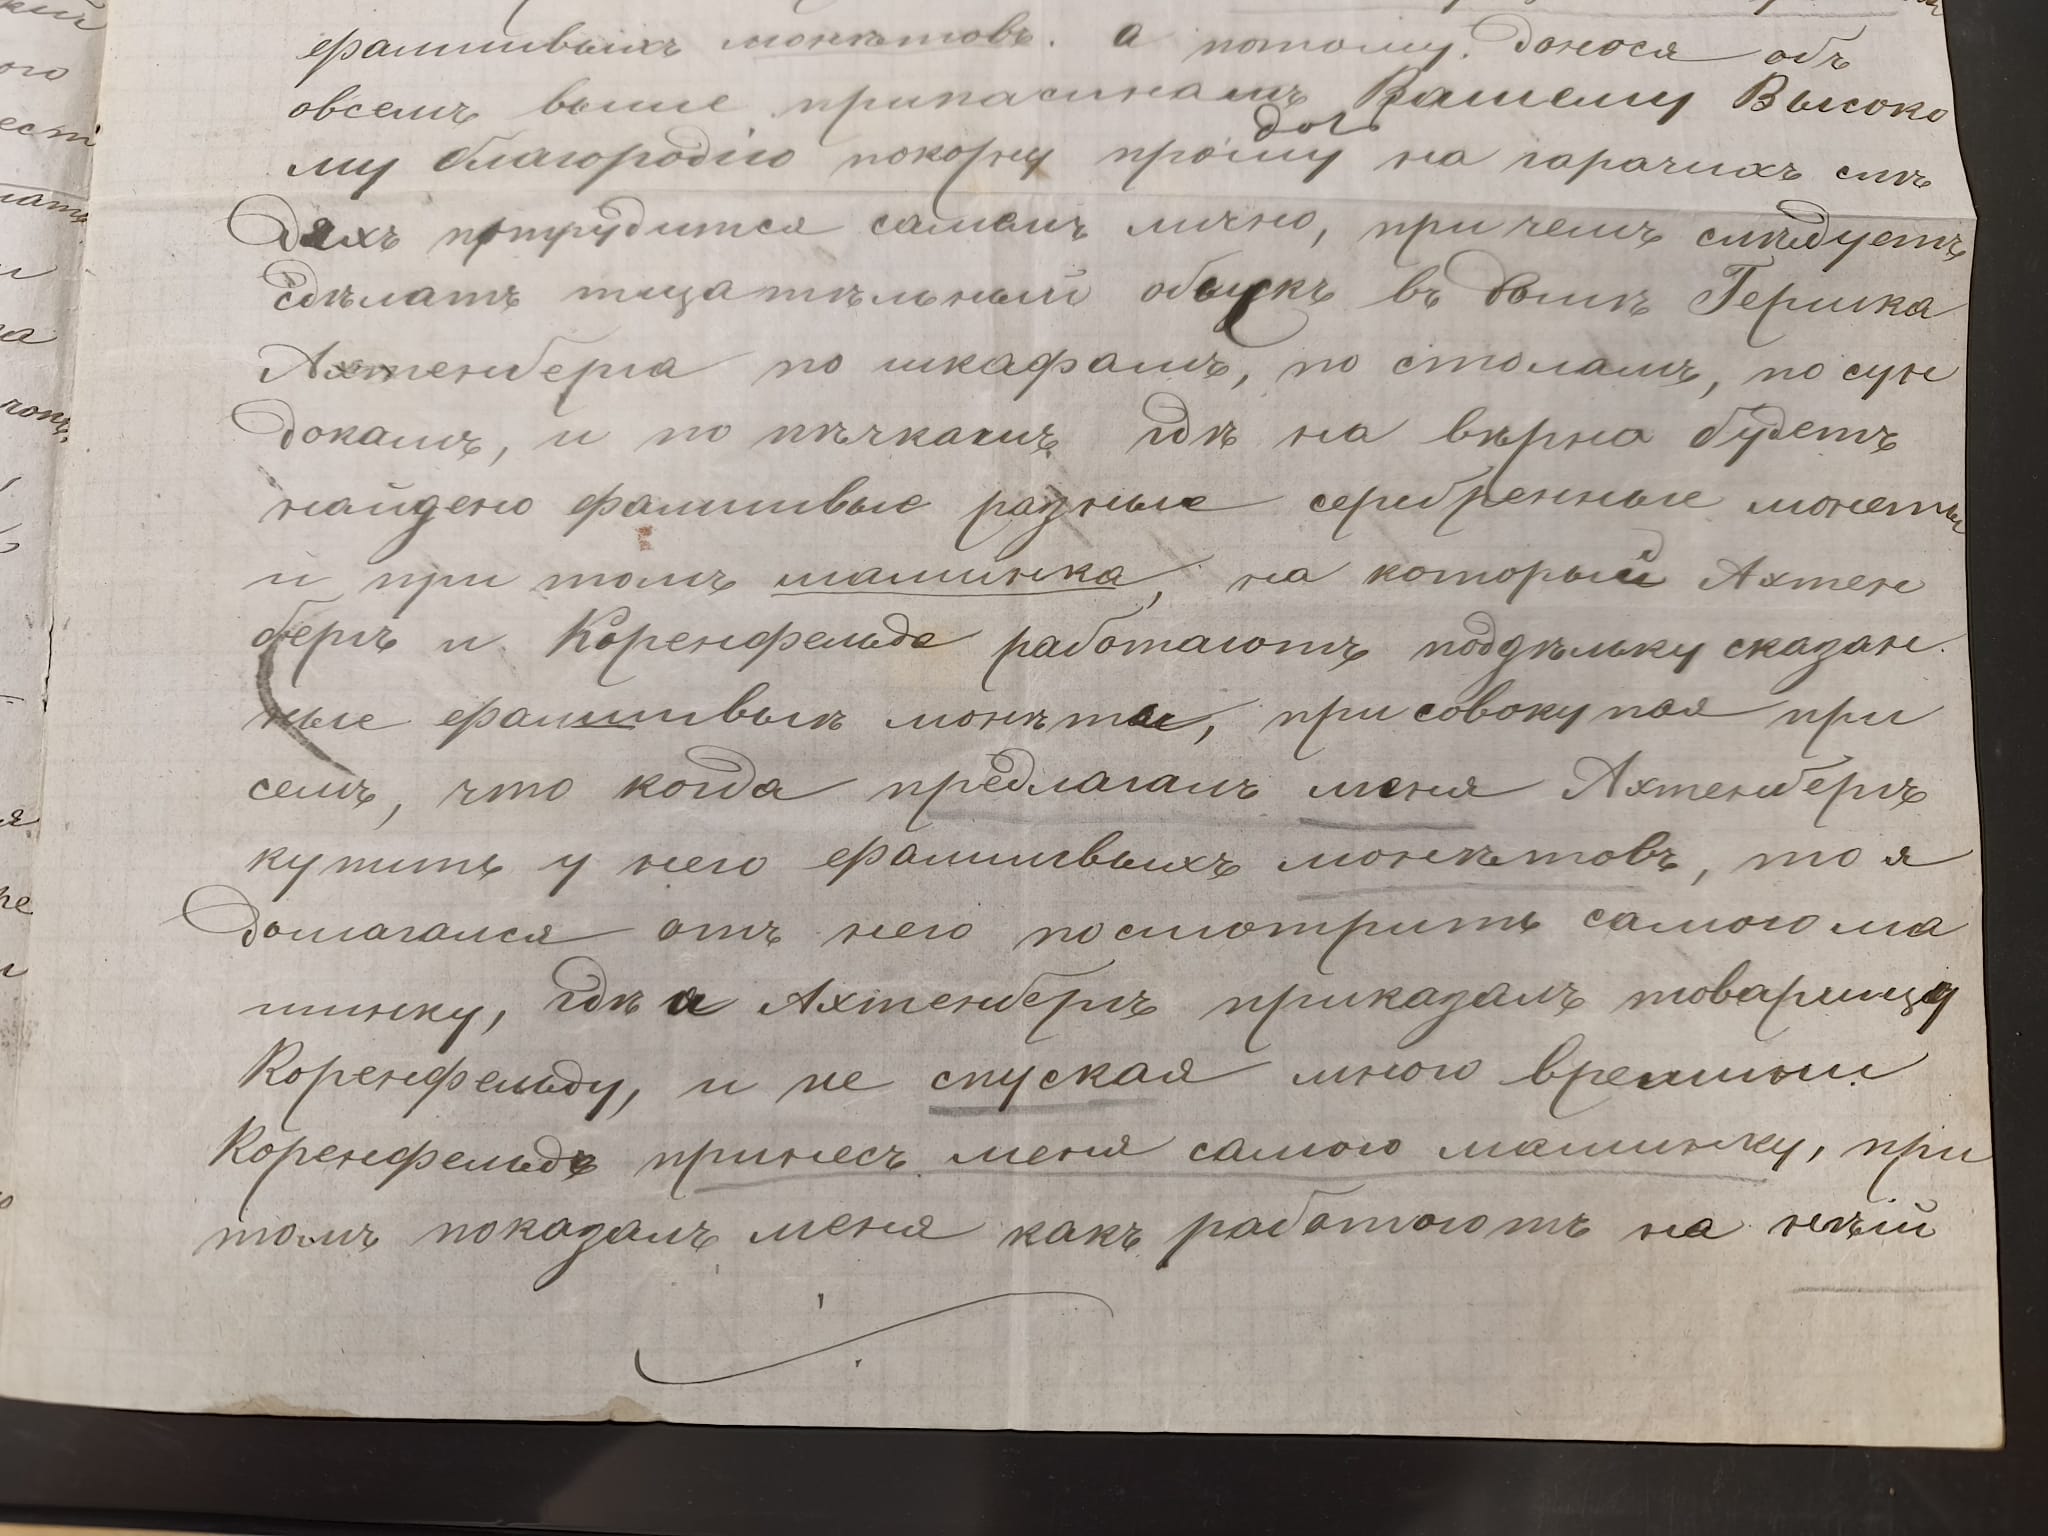 фалшивыхъ монѣтовъ. а потому. донося объ
овсемъ выше припасинамъ Вашему Высоко
му благородію покорну прошу на гарачихъ слѣ
дяхъ потрудится самомъ лично, при чемъ слѣдуетъ
сдѣлатъ тщатѣльный обыскъ въ домѣ Гершка
Ахтенберга по шкафамъ, по столамъ, по сун
докамъ, и по пѣчкамъ гдѣ на вѣрна будетъ
найдено фалшивые разные серебренные монеты
и при томъ машинка, на который Ахтен
бергъ и Коренфельдъ работаютъ поддѣльку сказан
ные фалшивыѣ монѣты, присовокупая при
семъ, что когда предлагалъ меня Ахтенбергъ
купить у него фалшивыхъ монѣтовъ, то я
домагался отъ него посмотрить самого ма
шинку, гдѣ я Ахтенбергъ приказалъ товарищу
Коренфельду, и не спуская много времины
Коренфельдъ принесъ меня самого машинку, при
томъ показалъ меня какъ работаютъ на нѣй